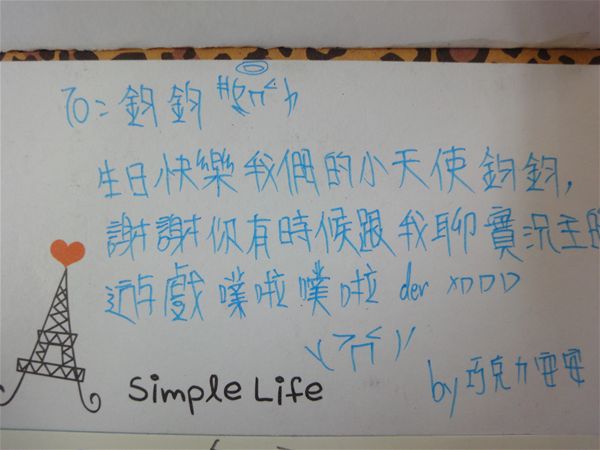 To：鈞鈞
生日快樂我們的小天使鈞鈞，
謝謝你有時候跟我聊實況主跟
遊戲噗啦噗啦 der XDDD
Simple Life
by 巧克力安安